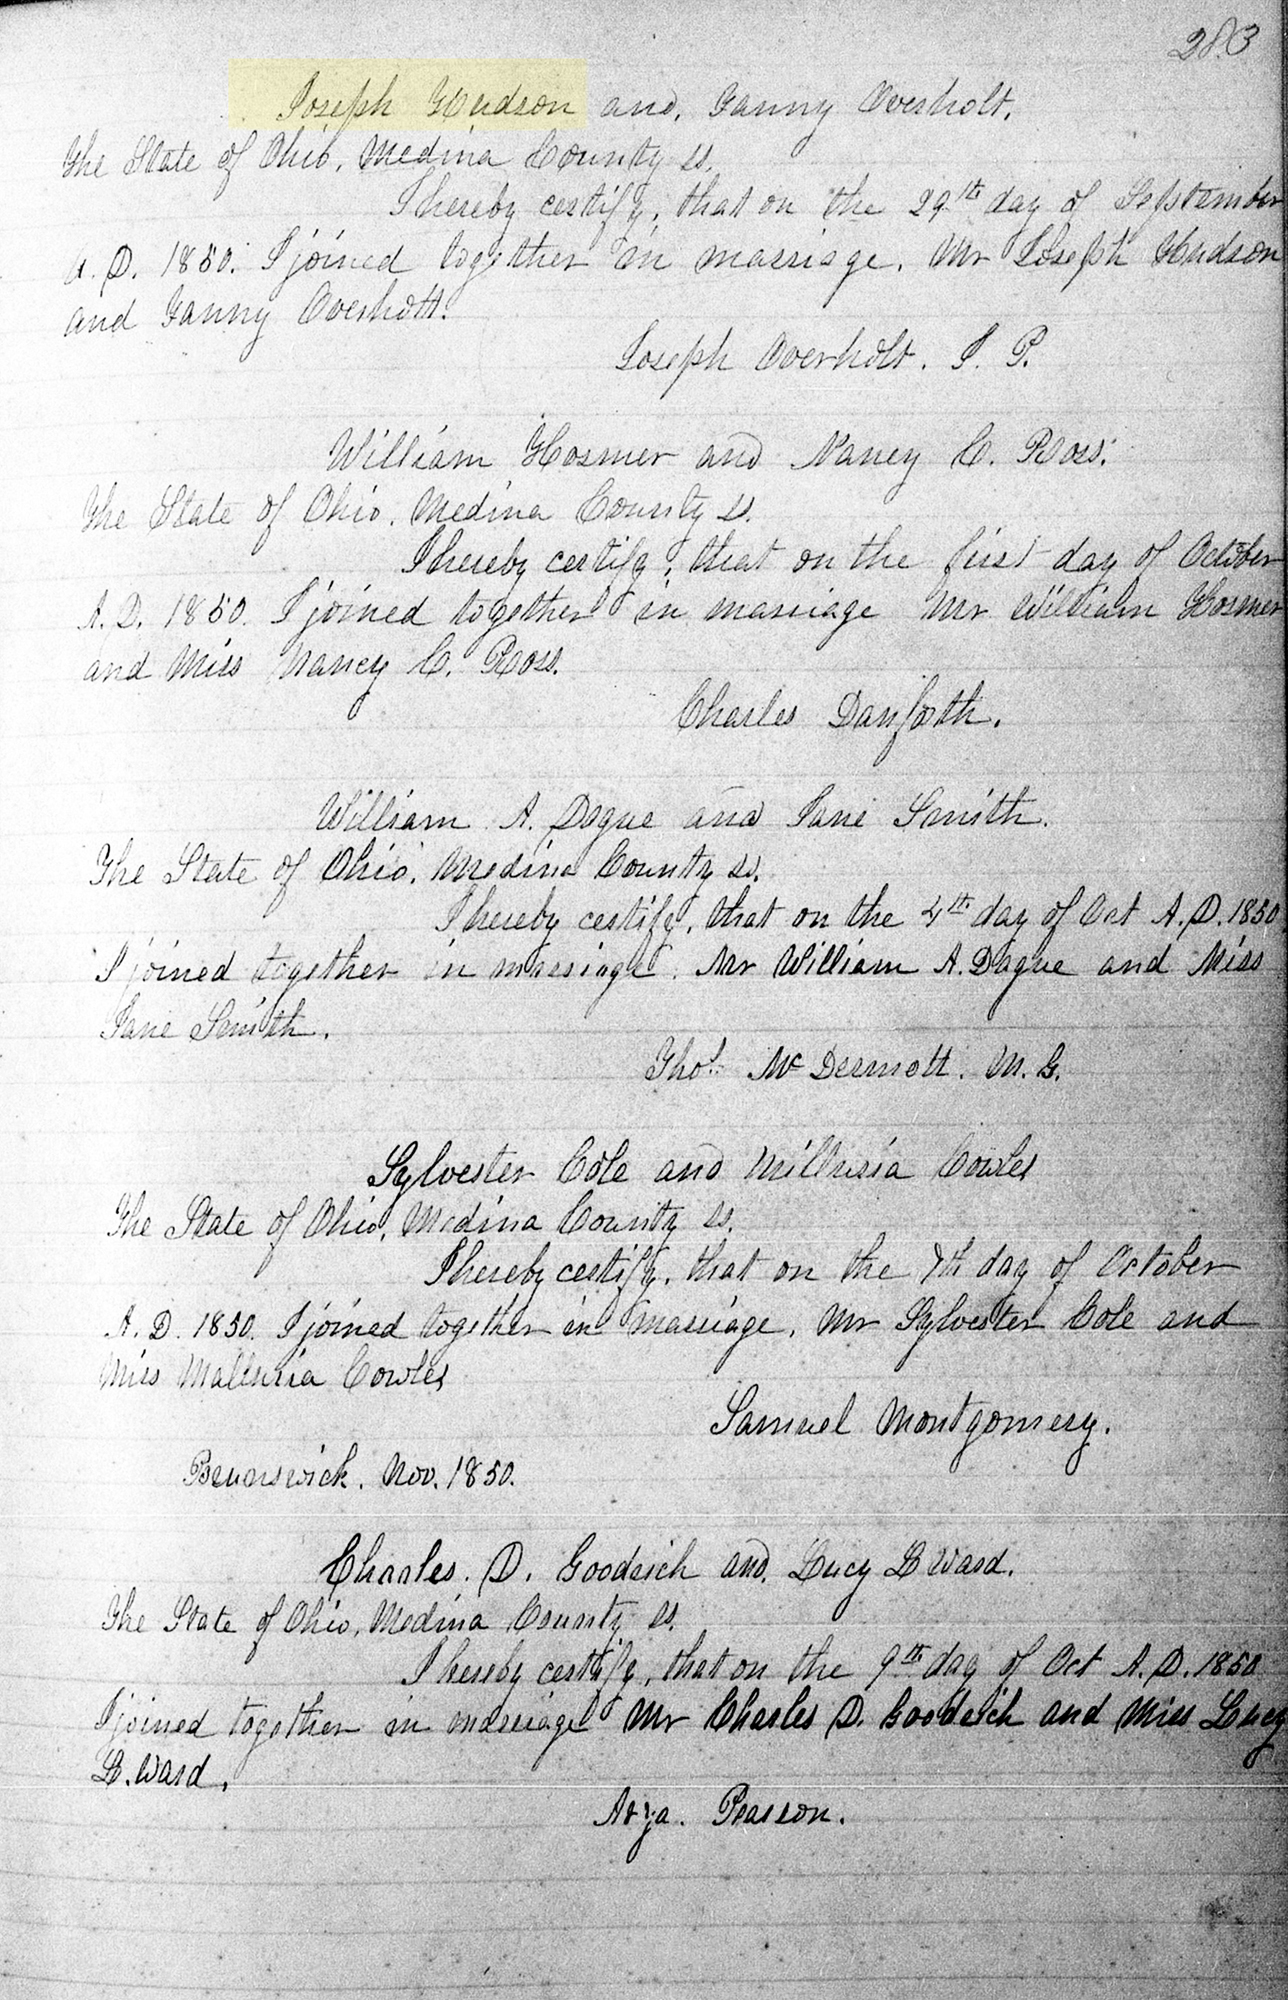 283
Joseph Hudson and, Fanny Overholt.
The State of Ohio, Medina County ss.
I hereby certify, that on the 29th day of September
A. D. 1850. I joined together in marriage, Mr Joseph Hudson
and Fanny Overholt.
Joseph Overholt. J. P.
William Hosmer and Nancy C. Ross.
The State of Ohio, Medina County ss.
I hereby certify, that on the first day of October
A. D. 1850. I joined together in marriage Mr William Hosmer
and Miss Nancy C. Ross.
Charles Danforth.
William A. Dague and Jane Smith.
The State of Ohio, Medina County ss.
I hereby certify, that on the 4th day of Oct A. D. 1850
I joined together in marriage, Mr William A. Dague and Miss
Jane Smith.
Thos. Mc Dermott. M. G.
Sylvester Cole and Millusia Cowles
The State of Ohio, Medina County ss.
I hereby certify, that on the 7th day of October
A. D. 1850. I joined together in marriage, Mr Sylvester Cole and
Miss Mallusia Cowles
Samuel Montgomery.
Brunswick, Nov. 1850.
Charles. D. Goodrich and, Lucy L Ward.
The State of Ohio, Medina County ss.
I hereby certify, that on the 9th day of Oct A. D. 1850
I joined together in marriage Mr Charles D. Goodrich and Miss Lucy
L. Ward.
Pearson.